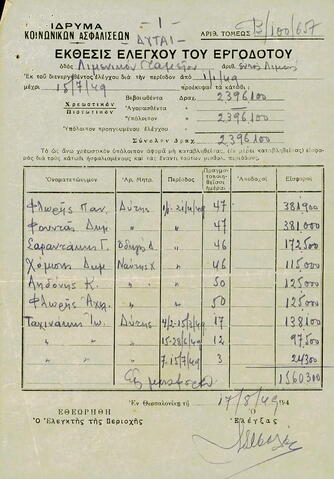 ΙΔΡΥΜΑ
ΚΟΙΝΩΝΙΚΩΝ ΑΣΦΑΛΙΣΕΩΝ
ΑΡΙΘ. ΤΟΜΕΩΣ
ΔΥΤΑΙ
ΕΚΘΕΣΙΣ ΕΛΕΓΧΟΥ ΤΟΥ ΕΡΓΟΔΟΤΟΥ
ὁδὸς Λιμενικὸν Ταμεῖον ἀριθ. ἐντὸς Λιμένος
Ἐκ τοῦ διενεργηθέντος ἐλέγχου διὰ τὴν περίοδον ἀπὸ 1/1/49
μέχρι 15/7/49 προέκυψαν τὰ κάτωθι :
Χρεωστικὸν Βεβαιωθέντα Δραχ. 2396100
Πιστωτικὸν Ἀγορασθέντα »
Ὑπόλοιπον » 2396100
Ὑπόλοιπον προηγουμένου ἐλέγχου »
Σύνολον Δραχ. 2396100
Τὸ ὡς ἄνω χρεωστικὸν ὑπόλοιπον ἀφορᾷ μὴ καταβληθείσας, (ἐν μέρει καταβληθείσας) εἰσφορὰς διὰ τοὺς κάτωθι ἠσφαλισμένους καὶ τὰς ἔναντι τούτων περιόδους.
Ὀνοματεπώνυμον Ἀρ. Μητρ. Περίοδος Πραγματοποιηθεῖσαι ἡμέραι Ἀποδοχαὶ Εἰσφοραὶ
Φλωρῆς Παν. Δύτης 1/1-21/4/49 47 381900
Φουντᾶς Δημ 〃 〃 47 381000
Σαραντάκης Γ. Ὁδηγὸς Δ. 〃 46 172500
Δημ Ναύτης 〃 46 115000
Ἀηδόνης Κ. 〃 50 125000
Φλωρῆς Ἀχιλ. 〃 50 125000
Ταχινάκης Ἰω. Δύτης 4/2-15/3/49 17 138100
〃 〃 15-28/6/49 12 97500
〃 〃 7-15/7/49 3 24300
Εἰς μεταφοράν 1560300
Ἐν Θεσσαλονίκῃ τῇ 17/8/49 194
ΕΘΕΩΡΗΘΗ
Ὁ Ἐλεγκτὴς τῆς Περιοχῆς
Ὁ
Ἐλέγξας